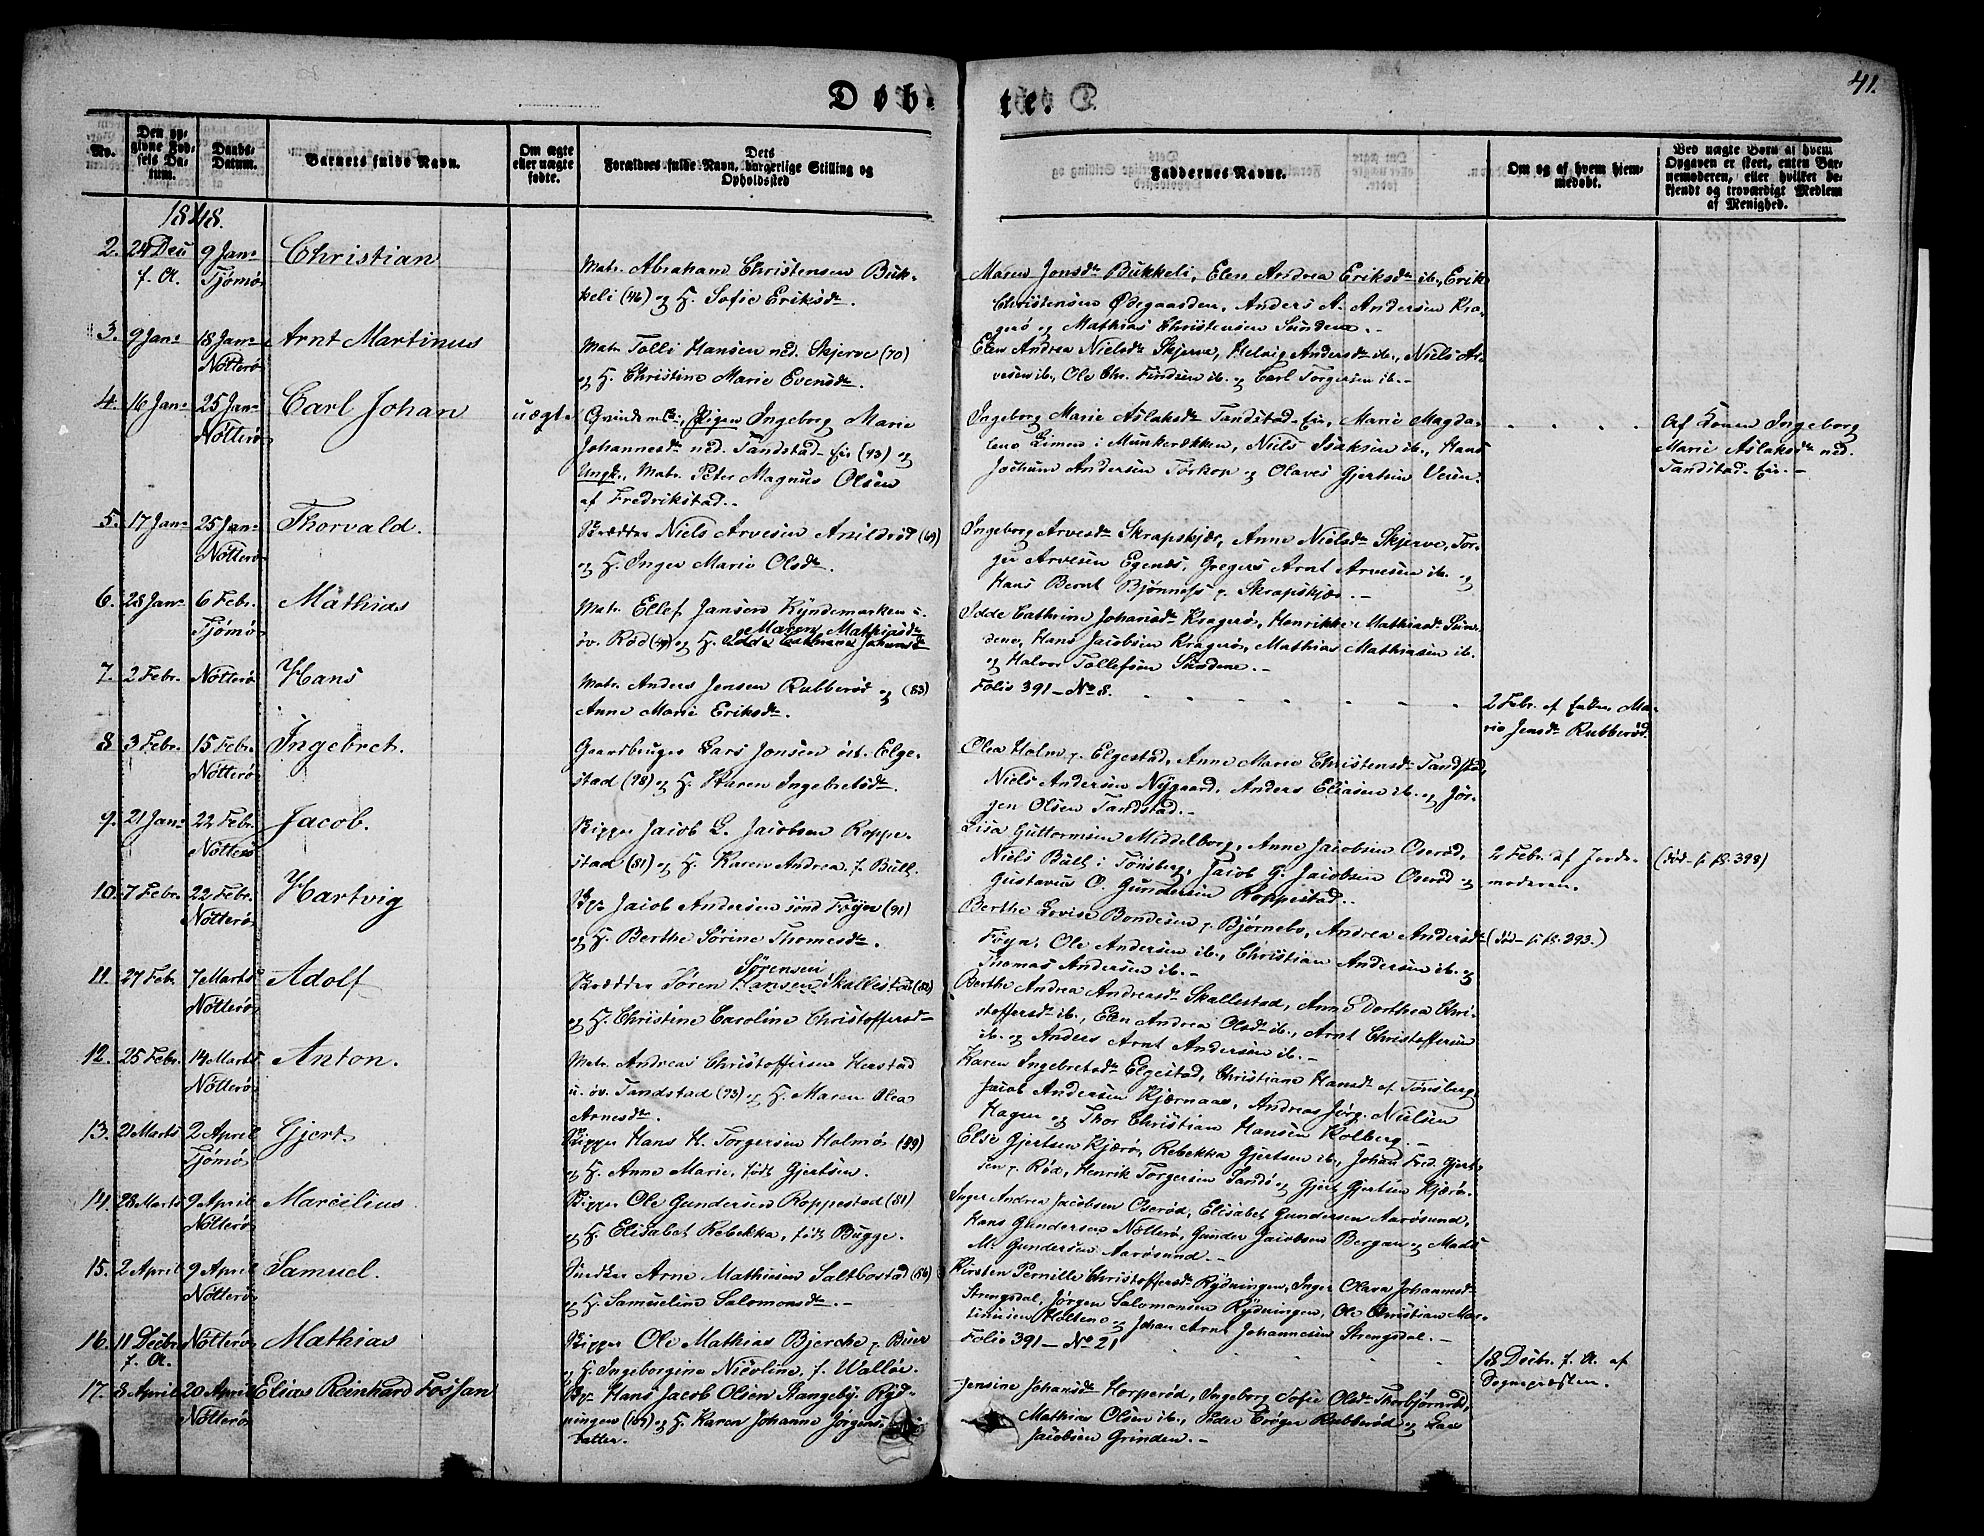 41.
Døb-
te.
No.
Den op-
givne Fød-
sels Da-
tum.
Daabs-
Datum.
Barnets fulde Navn.
Om ægte
eller uægte
fødte.
Dets
Forældres fulde Navn, borgerlige Stilling og
Opholdssted
Faddernes Navne.
Om og af hvem hjem-
medøbt.
Ved uægte Børn af hvem
Opgaven er skeet, enten Bar-
nemoderen, eller hvilket be-
kjendt og troværdigt Medlem
af Menighed.
1848.
2. 24 Dec 9 Jan. Christian
f. A. Tjømø
Matr. Abraham Christensen Buk-
keli (46) og H. Sofie Eriksdr.
Maren Jonsdr Bukkeli, Elen Andrea Eriksdr ib., Erik
Christensen Ødegaarden, Anders A. Andersen Kra-
gerø og Mathias Christensen Sundene.-
3. 9 Jan. 18 Jan. Arnt Martinus
Nötterö
Matr Tolli Hansen ned. Skjerve (70)
og H. Christine Marie Evensdr.
Elen Andrea Nielsdr Skjerve, Helvig Andersdr ib., Niels Ar-
vesen ib., Ole Chr. Findsen ib. og Carl Torgersen ib.-
4. 16 Jan. 25 Jan. Carl Johan uægte
Nötterö
Qvindem. Pigen Ingeborg Marie
Johannesdr ned. Tandstad-Eie (73) og
Ungk., Matr. Peter Magnus Olsen
af Fredrikstad.-
Ingeborg Marie Aslaksdr Tandstad-Eie, Marie Magda-
lene Simen i Munkerækken, Niels Isaksen ib., Hans
Jochum Andersen Torkop og Olaves Gjertsen Veien.
Af Konen Ingeborg
Marie Aslaksdr ned.
Tandstad-Eie.-
5. 17 Jan. 25 Jan. Thorvald.
Nötterö
Skrædder Niels Arvesen Arildrød (69)
og H. Inger Marie Olsdr.
Ingeborg Arvesdr Skrapskjær, Anne Nielsdr Skjerve, Tor-
ger Arvesen Egenes, Gregers Arnt Arvesen ib. og
Hans Bernt Bjønness p. Skrapskjær.-
6. 28 Jan. 6 Febr. Mathias
Tjömö
Matr. Ellef Jansen Kyndemarken u.
Maren Mathiasdr
öv. Röd (49) og H. Edde Cathrine Johansdr
Edde Cathrine Johansdr Kragerø, Henrikke Mathiasdr Sun-
dene, Hans Jacobsen Kragerø, Mathias Mathiasen ib.
og Halvor Tollefsen Sundene.-
7. 2 Febr. Nötterö Hans
Matr. Anders Jensen Rubberöd og (83)
Anne Marie Eriksdr.
Folio 391 - No 8.
2 Febr. af Enken Ma-
rie Jensdr Rubberöd
8 3 Febr. 15 Febr. Ingebret.
Nötterö
Gaardbruger Lars Jonsen öst. Elge-
stad (78) og H. Karen Ingebretsdr.
Olea Holm p. Elgestad, Anne Marie Christensdr Tandstad,
Niels Andersen Nygaard, Anders Eliasen ib. og Jör-
gen Olsen Tandstad.-
9. 21 Jan. 22 Febr. Jacob.
Nötterö
Skipper Jacob L. Jacobsen Roppe-
stad (81) og H. Karen Andrea, f. Bull.
Lisa Guttormsen Middelborg, Anne Jacobsen Oserød,
Niels Bull i Tønsberg, Jacob G. Jacobsen Oserød og
Gustavus O. Gundersen Roppestad.-
2 Febr. af Jorde-
moderen.
(død- fol. 398)
10. 7 Febr. 22 Febr. Hartvig
Nötterö
Jacob Andersen sønd Føyn (91)
og H. Berthe Sørine Thomesdr.
Berthe Lovise Bondesen p. Bjørnebo, Andrea Andersdr
Föyn, Ole Andersen ib., Christian Andersen ib. og
Thomas Andersen ib.-
(død- fol. 393.)
11. 27 Feb. 7 Marts Adolf
Nötterö
Sörensen
Skrædder Sören Hansen Skallestad (82)
og H. Christine Caroline Christoffersdr
Berthe Andrea Andreasdr Skallestad, Anne Dorthea Chri-
stoffersdr ib., Elen Andrea Olsdr ib., Arnt Christoffersen
ib. og Anders Arnt Andersen ib.-
12. 25 Febr. 14 Marts Anton.
Nötterö
Matr Andreas Christoffersen Herstad
u. öv. Tandstad (73) og H. Maren Olea
Arnesdr.
Karen Ingebretsdr Elgestad, Christiane Hansdr af Tønsberg,
Jacob Andersen Kjærnaas, Andreas Jörg. Nielsen
Hagen og Thor Christian Hansen Kolberg.-
13. 2 Marts 2 April Gjert.
Tjömö
Skipper Hans H. Torgersen Holmö (99)
og H. Anne Marie, født Gjertsen.
Else Gjertsen Kjærø, Rebekka Gjertsen ib., Johan Fred. Gjert-
sen p. Röd, Henrik Torgersen Sandö og Gjert Gjertsen Kjærö.
14. 28 Marts 9 April Marcelius
Nötterö
Skipper Ole Gundersen Roppestad (81)
og H. Elisabet Rebekka, født Bugge.
Inger Andrea Jacobsen Oserød, Elisabet Gundersen Aarösund,
Hans Gundersen Nötterö, Gunder Jacobsen Bergan og Mads
M. Gundersen Aarösund.-
15. 2 April 9 April Samuel.
Nötterö
Snedker Arne Mathiesen Saltbostad (56)
og H. Samueline Salomonsdr.-
Kirsten Pernille Christoffersdr Rydningen, Inger Olava Johannesdr
Strengsdal, Jörgen Salomonsen Rydningen, Ole Christian Mar-
tinusen Holtene og Johan Arnt Johannesen Strengsdal.-
16. 11 Decbr Nötterö Mathias
f. A.
Skipper Ole Mathias Bjerche p. Buer
og H. Ingeborgine Nicoline, f. Walløe.
Folio 391 - No 21
18 Decbr. f. A. af
Sognepræsten.
17. 8 April 20 April Elias Reinhard Fossan
Nötterö
Hans Jacob Olsen Stangeby Ryd-
ningen (109) og H. Karen Johanne Jørgens-
datter.
Jensine Johansdr Horperød, Ingeborg Sofie Olsdr Thorbjørnrød,
Mathias Olsen ib., Peder Trøger Rubberød og Lars
Jacobsen Grinden.-